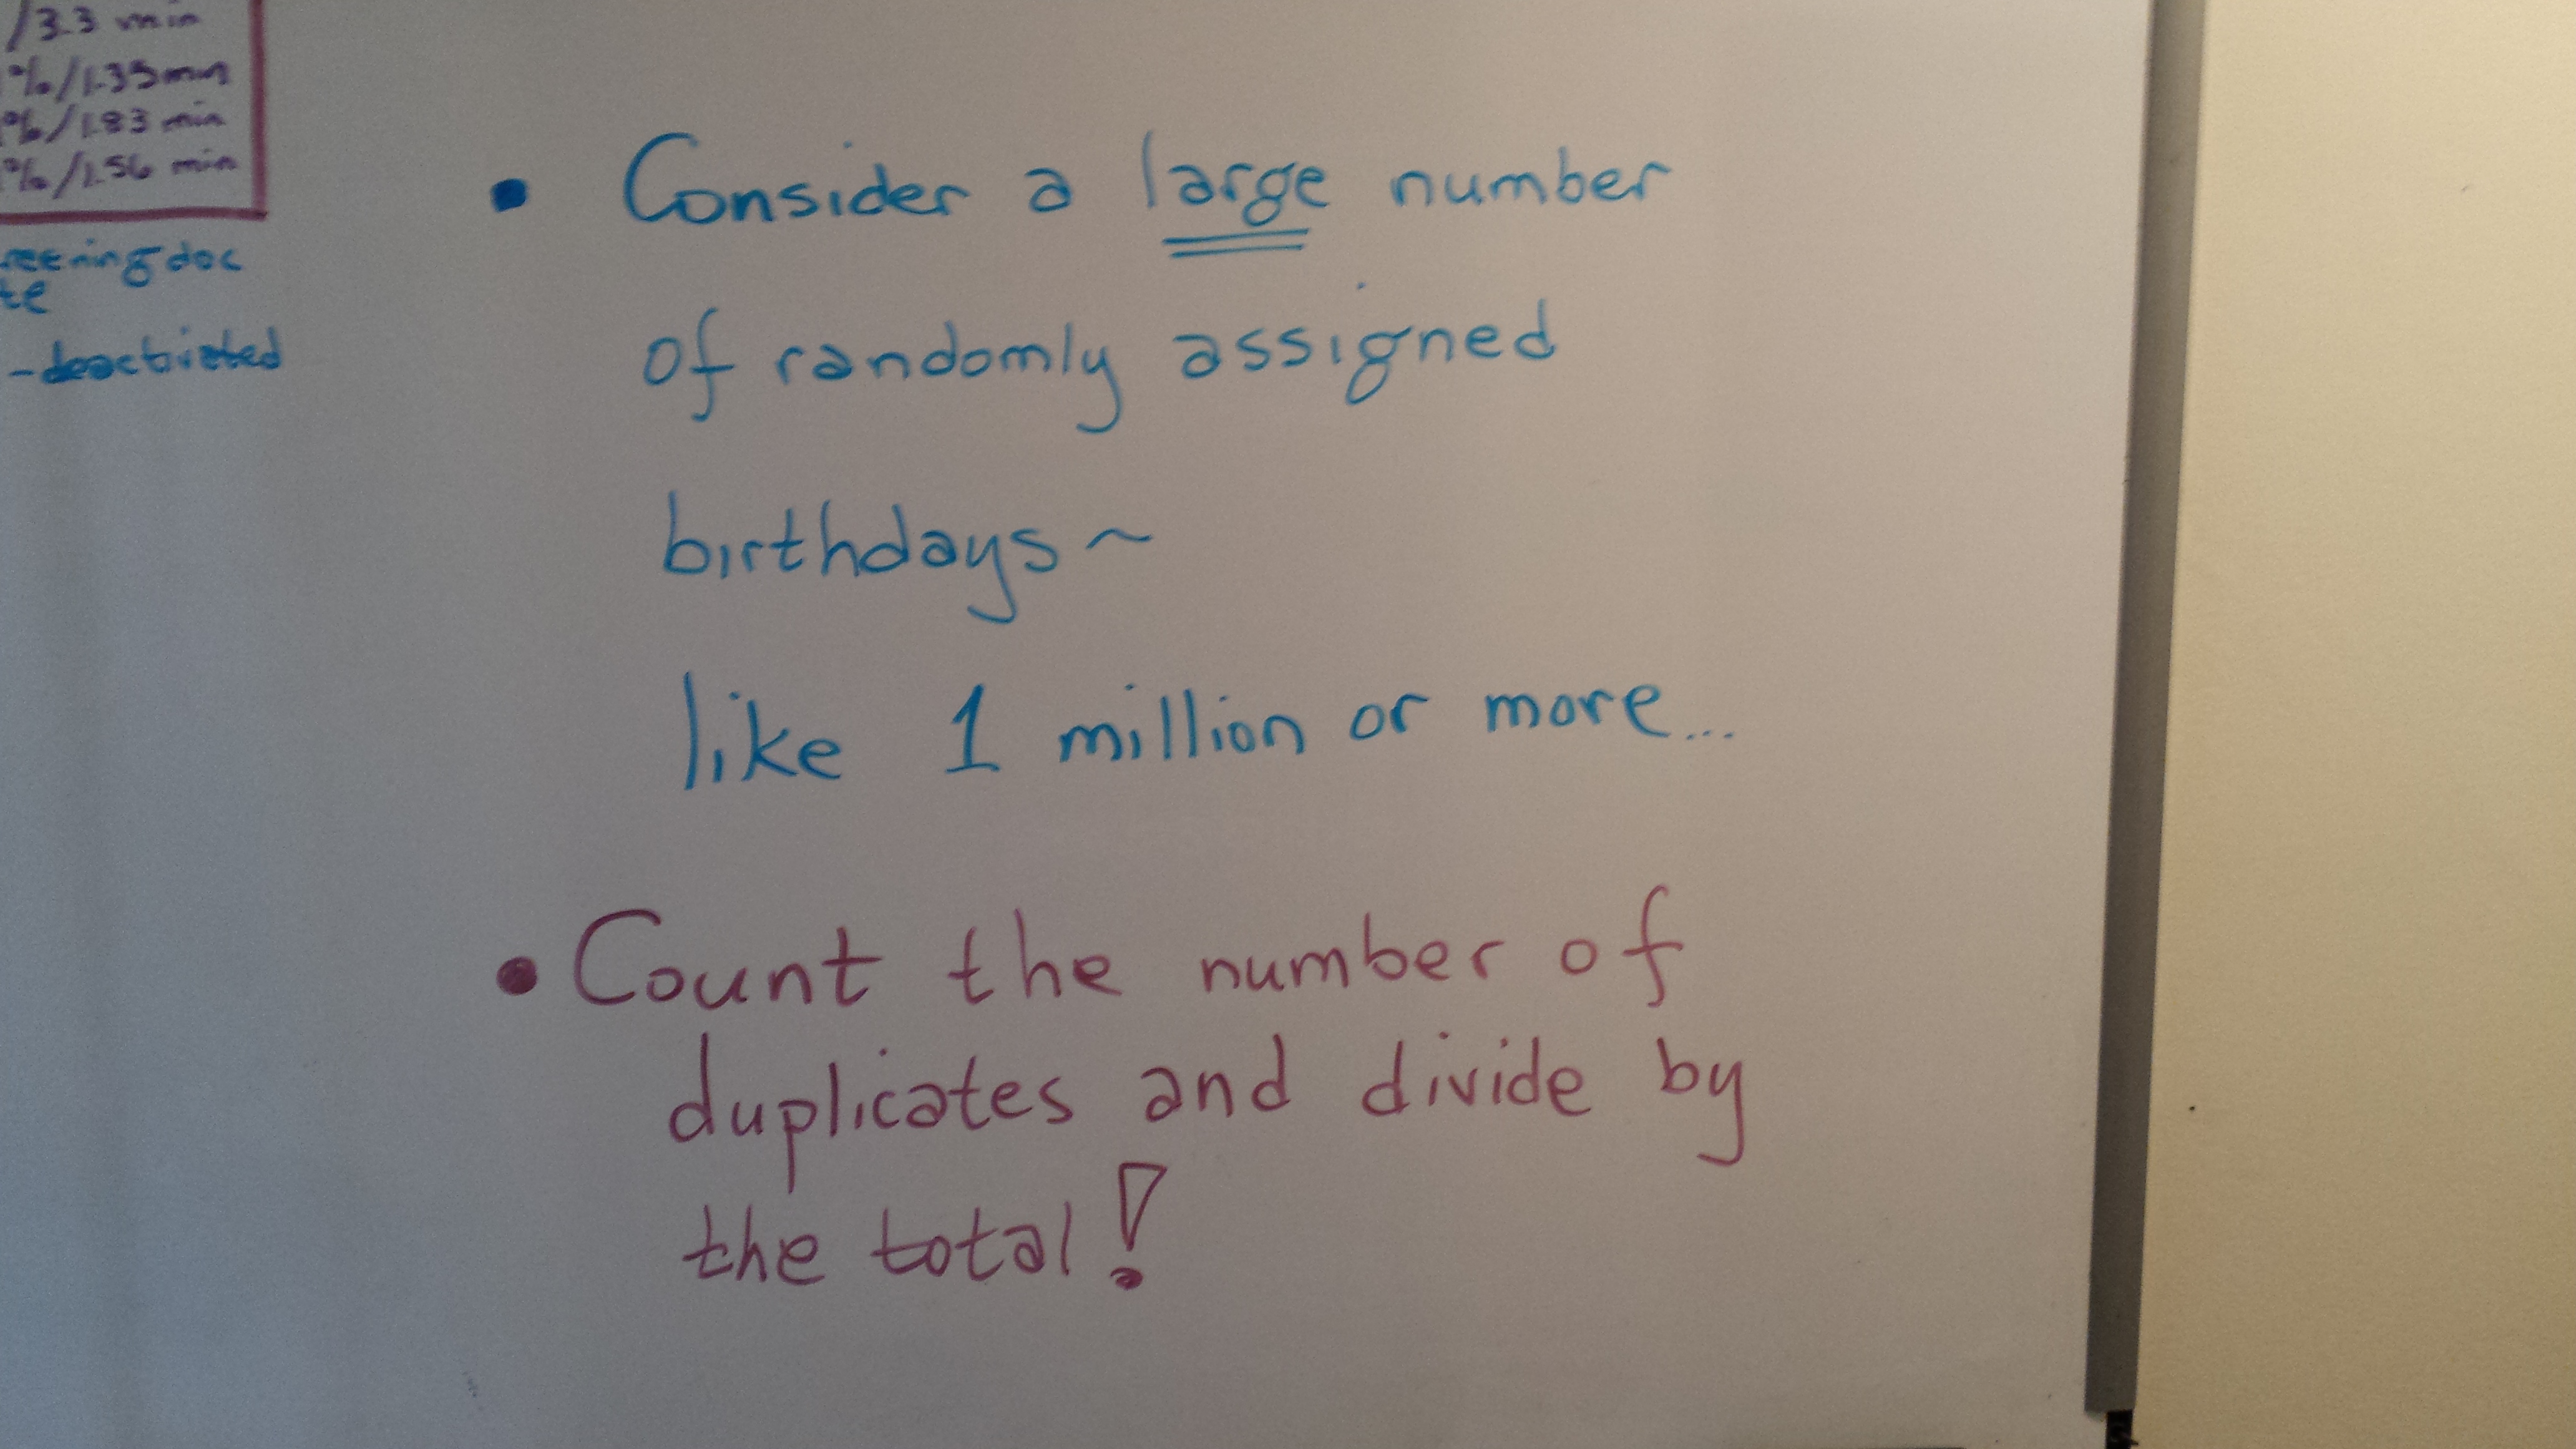 /3.3 min
%/1.35min
%/1.83 min
%/1.56 min
- deactivated
• Consider a large number
of randomly assigned
birthdays ~
like 1 million or more...
• Count the number of
duplicates and divide by
the total!